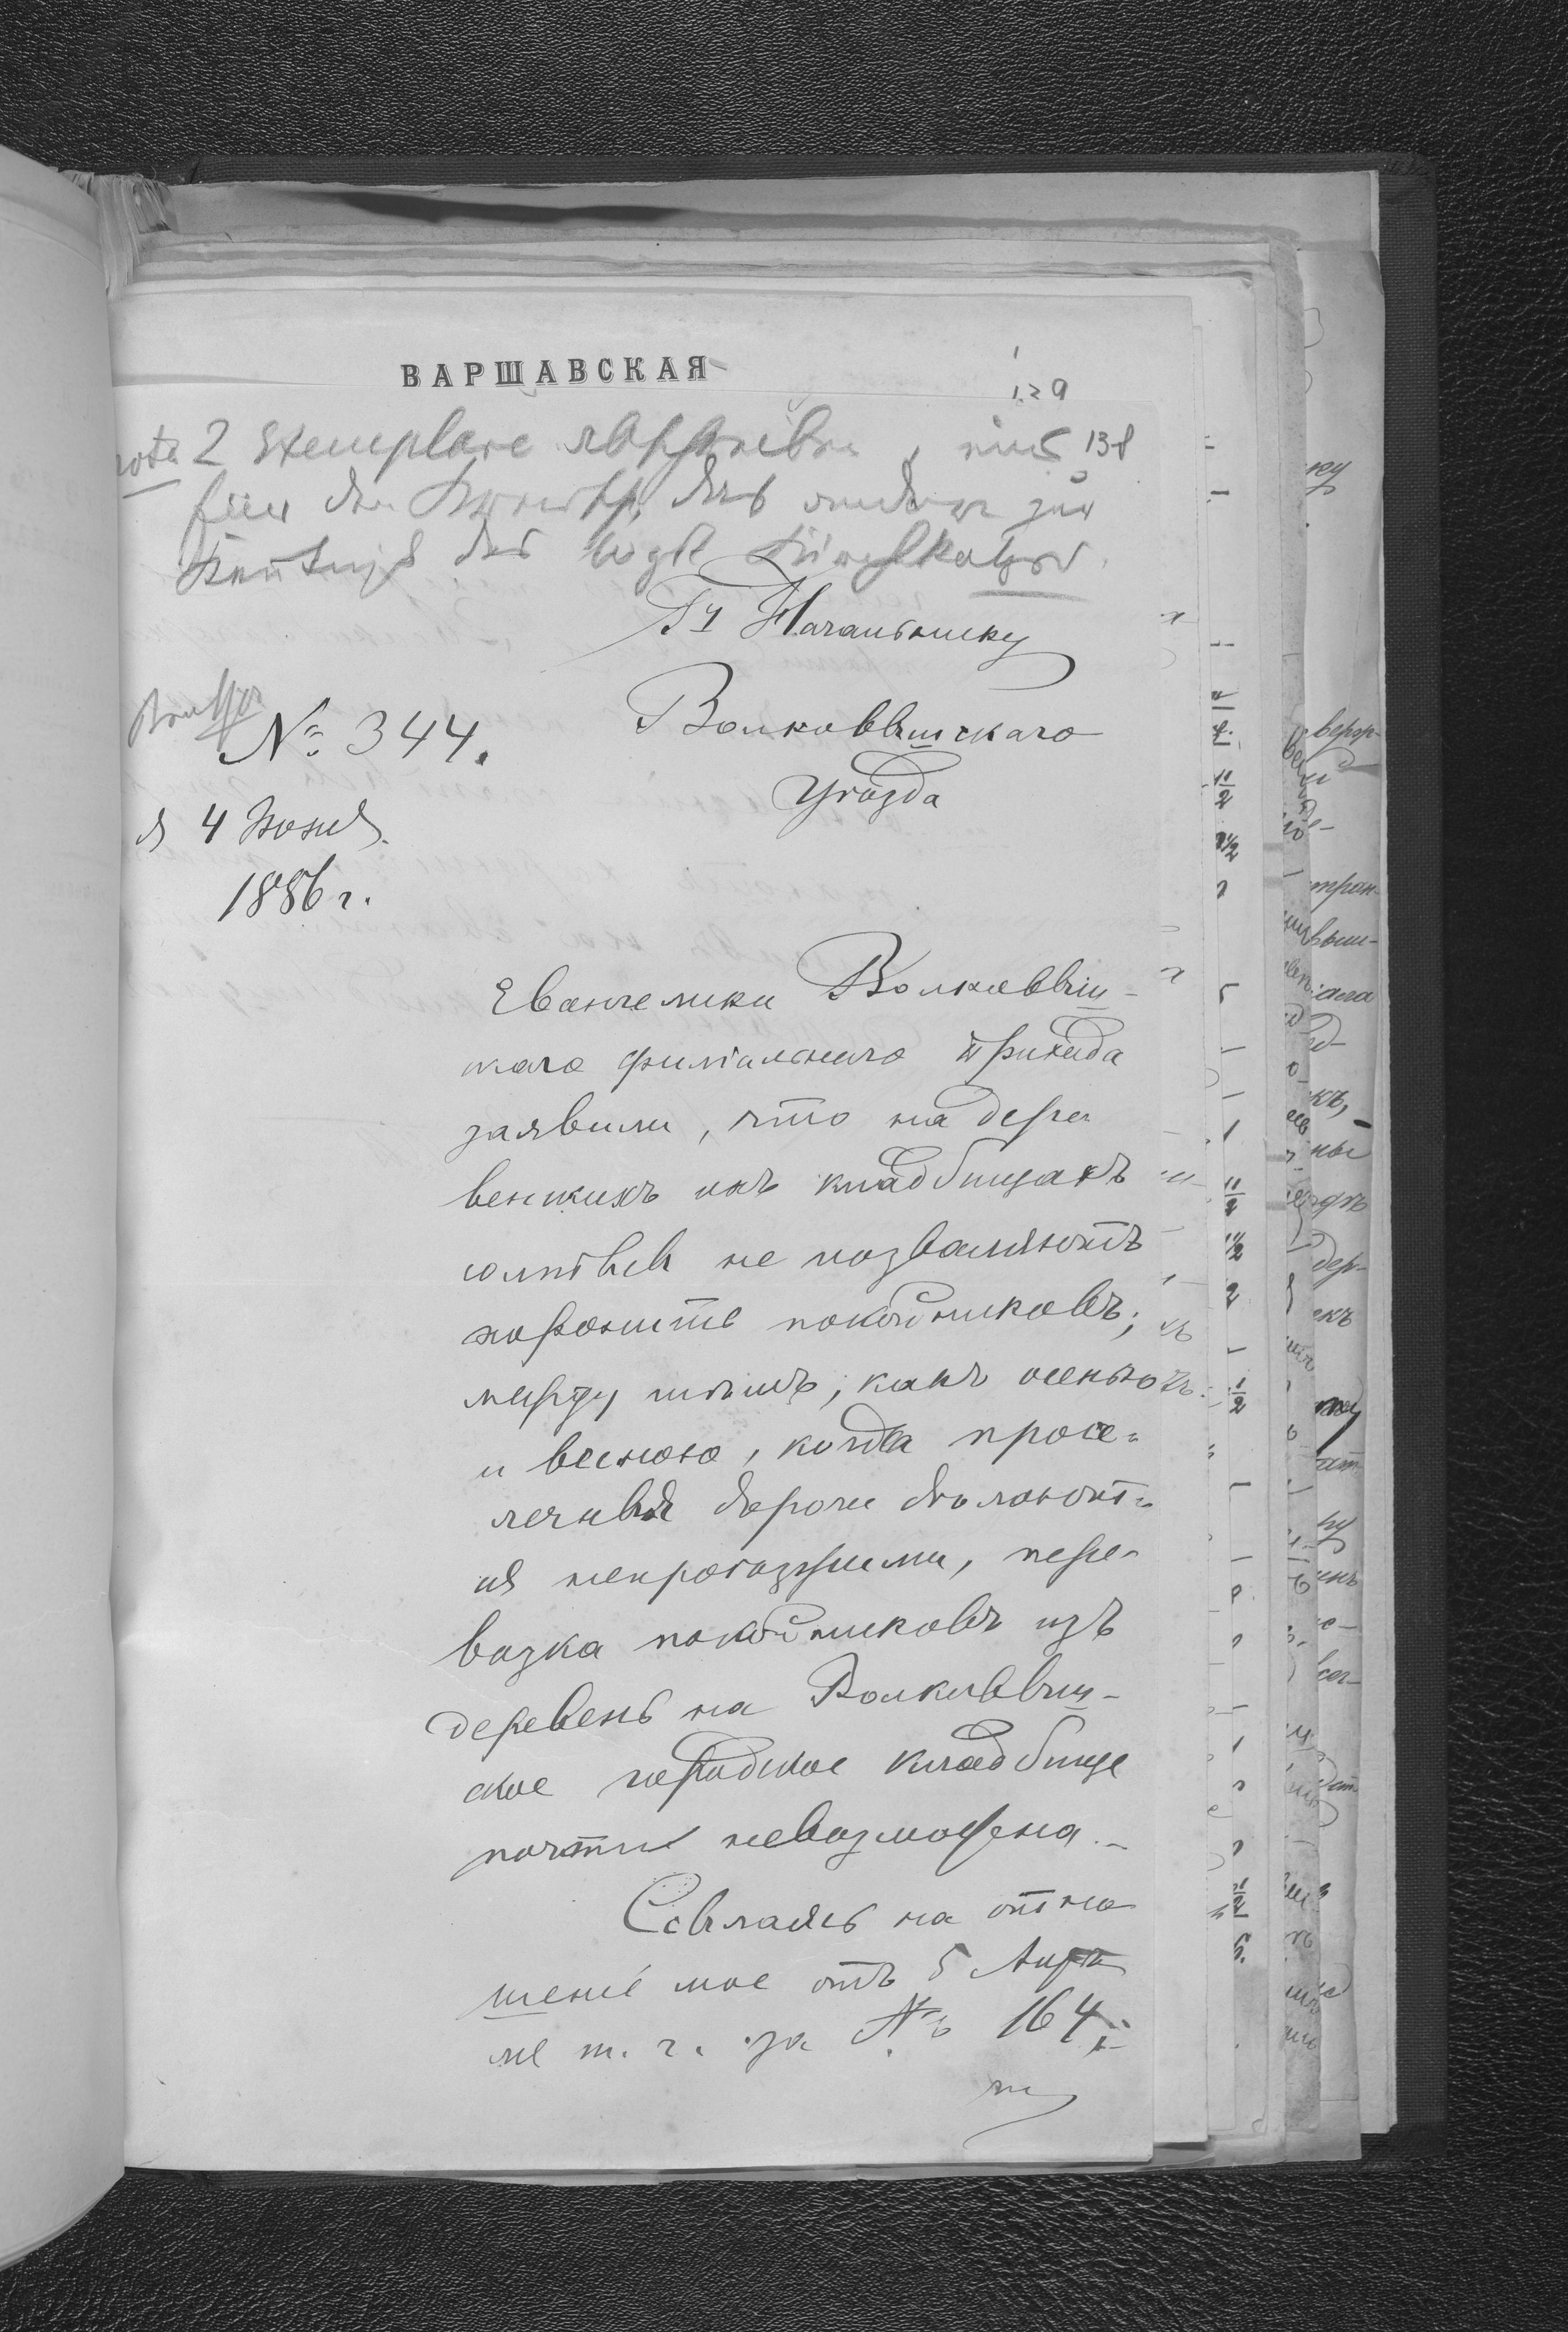 ВАРШАВСКАЯ
129
nota 2 Exemplare abschreiben, eins 138
für den Kreischef, das andere zur
Kentniß des Wyst.
Гу Начальнику
Волковышскаго
Уѣзда
№ 344.
4 Іюня
1886 г.
Евангелики Волковыш-
скаго филіальнаго прихода
заявили, что на дере-
венскихъ ихъ кладбищахъ
не позволяютъ
хоронить покойниковъ;
между тѣмъ, какъ осенью
и весною, когда просе-
лочныя дороги дѣлают-
ся непроѣзжими, пере-
возка покойниковъ изъ
деревень на Волковыш-
ское городское кладбище
почти невозможна.
Ссылаясь на отно
шеніе мое отъ 5 Апрѣ
ля т. г. за № 164,